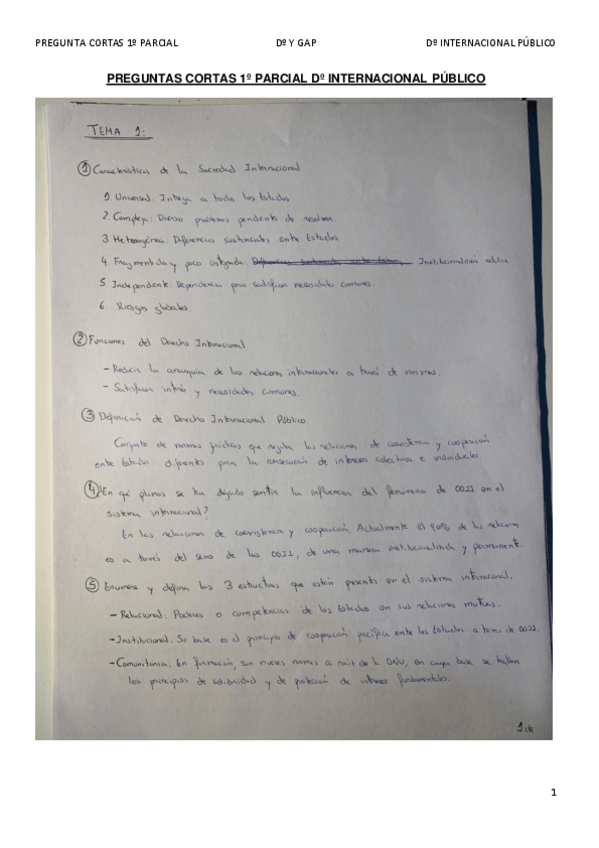 PREGUNTA CORTAS 1º PARCIAL Dº Y GAP Dº INTERNACIONAL PÚBLICO
PREGUNTAS CORTAS 1º PARCIAL Dº INTERNACIONAL PÚBLICO
TEMA 1:
① Características de la Sociedad Internacional.
1. Universal: Integra a todos los Estados
2. Compleja: Diversos problemas pendientes de resolver.
3. Heterogénea: Diferencias sustanciales entre Estados
4. Fragmentada y poco integrada: Institucionalización
5. Independiente: Dependencia para satisfacer necesidades comunes.
6. Riesgos globales
② Funciones del Derecho Internacional
- Reducir la anarquía de las relaciones internacionales a través de normas.
- Satisfacer interés y necesidades comunes.
③ Definición de Derecho Internacional Público.
Conjunto de normas jurídicas que regulan las relaciones de coexistencia y cooperación
entre Estados diferentes para la consecución de intereses colectivos e individuales.
④ ¿En qué planos se ha dejado sentir la influencia del fenómeno de OOII en el
sistema internacional?
En las relaciones de coexistencia y cooperación. Actualmente el 90% de las relaciones
es a través del seno de las OOII, de una manera institucionalizada y permanente.
⑤ Enumera y define las 3 estructuras que están presentes en el sistema internacional.
- Relacional: Poderes o competencias de los Estados en sus relaciones mutuas.
- Institucional: Su base es el principio de cooperación pacífica entre los Estados a través de OOII.
- Comunitaria: En formación, son nuevas normas a raíz de la ONU, en cuya base se hallan
los principios de solidaridad y de protección de intereses fundamentales.
1 de
1